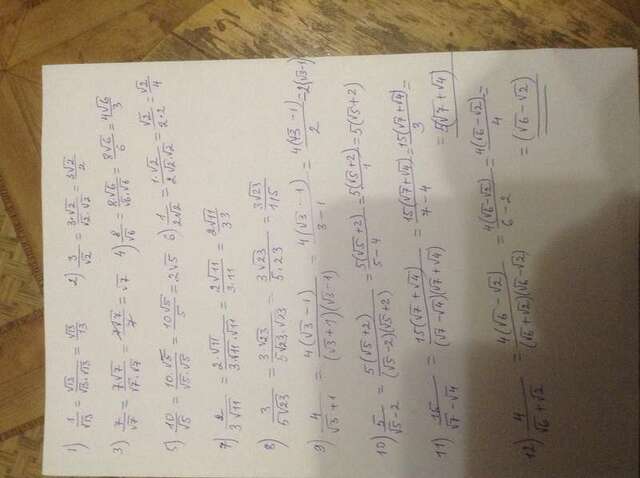 1) 1/√13 = √13/(√13·√13) = √13/13   2) 3/√2 = 3·√2/(√2·√2) = 3√2/2
3) 7/√7 = 7√7/(√7·√7) = 7√7/7 = √7   4) 8/√6 = 8·√6/(√6·√6) = 8√6/6 = 4√6/3
5) 10/√5 = 10·√5/(√5·√5) = 10√5/5 = 2√5   6) 1/(2√2) = 1·√2/(2√2·√2) = √2/(2·2) = √2/4
7) 2/(3√11) = 2·√11/(3·√11·√11) = 2√11/(3·11) = 2√11/33
8) 3/(5√23) = 3·√23/(5√23·√23) = 3√23/(5·23) = 3√23/115
9) 4/(√3+1) = 4(√3-1)/((√3+1)(√3-1)) = 4(√3-1)/(3-1) = 4(√3-1)/2 = 2(√3-1)
10) 5/(√5-2) = 5(√5+2)/((√5-2)(√5+2)) = 5(√5+2)/(5-4) = 5(√5+2)/1 = 5(√5+2)
11) 15/(√7-√4) = 15(√7+√4)/((√7-√4)(√7+√4)) = 15(√7+√4)/(7-4) = 15(√7+√4)/3 =
= 5(√7+√4)
12) 4/(√6+√2) = 4(√6-√2)/((√6+√2)(√6-√2)) = 4(√6-√2)/(6-2) = 4(√6-√2)/4 =
= (√6-√2)